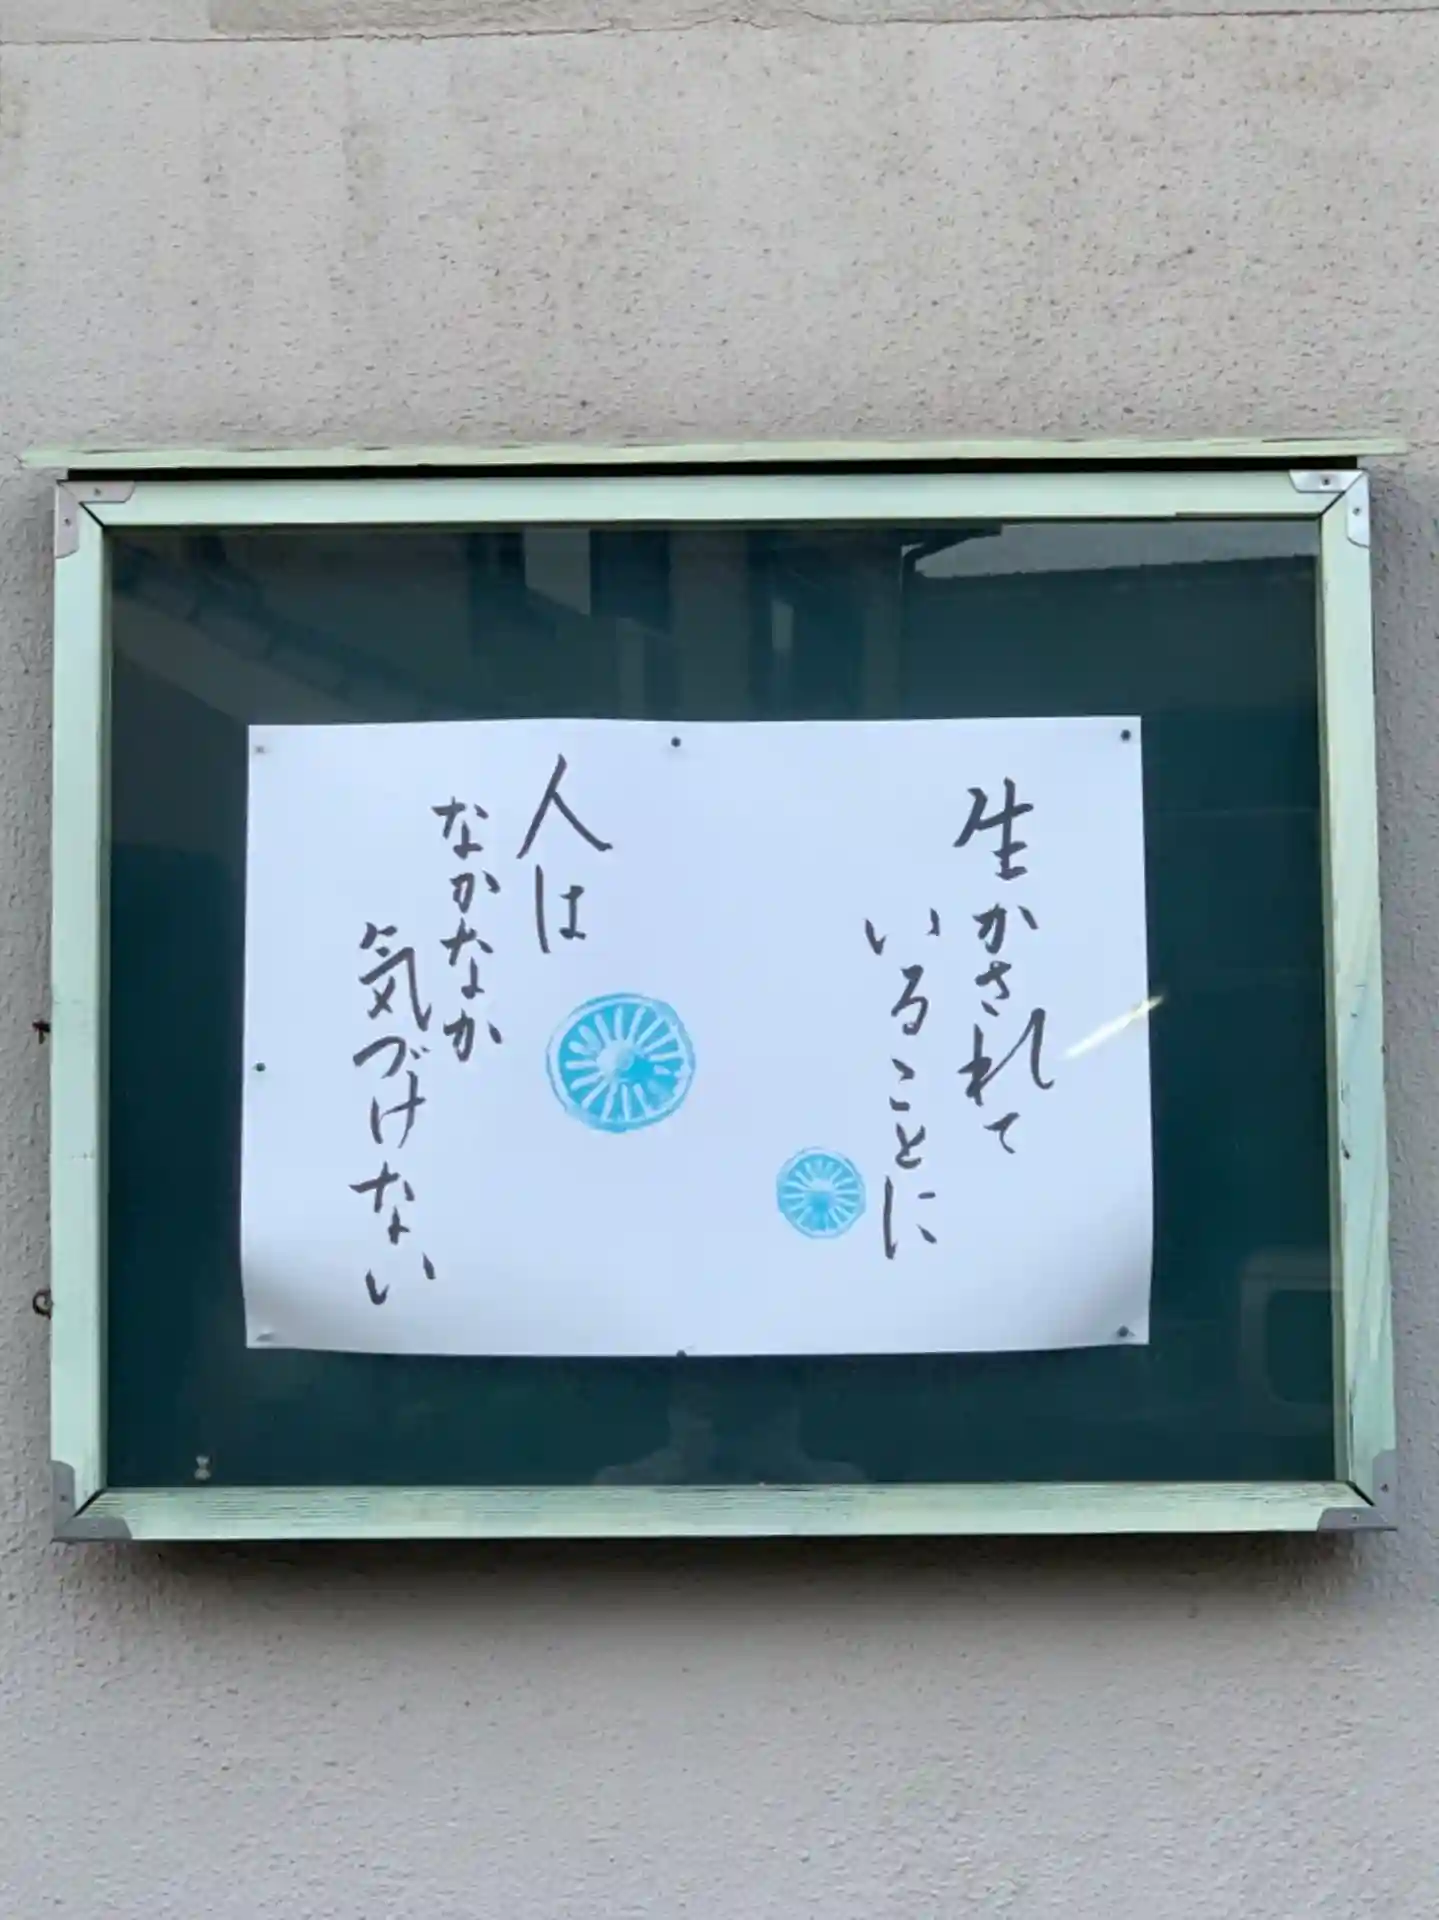 生かされて
いることに
人は
なかなか
気づけない